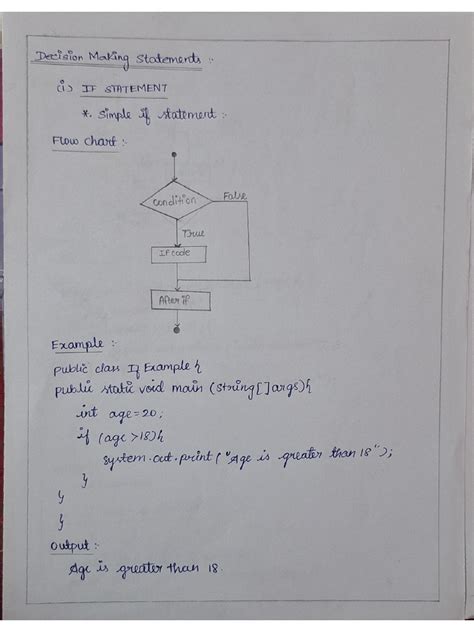 Decision Making Statements :-
(i) IF STATEMENT
*. Simple if statement :-
Flow Chart :-
condition
False
True
IF code
After if
Example :-
public class If Example {
public static void main (String[]args){
int age=20;
if (age >18){
system.out.print ("Age is greater than 18");
}
}
}
Output :-
Age is greater than 18.